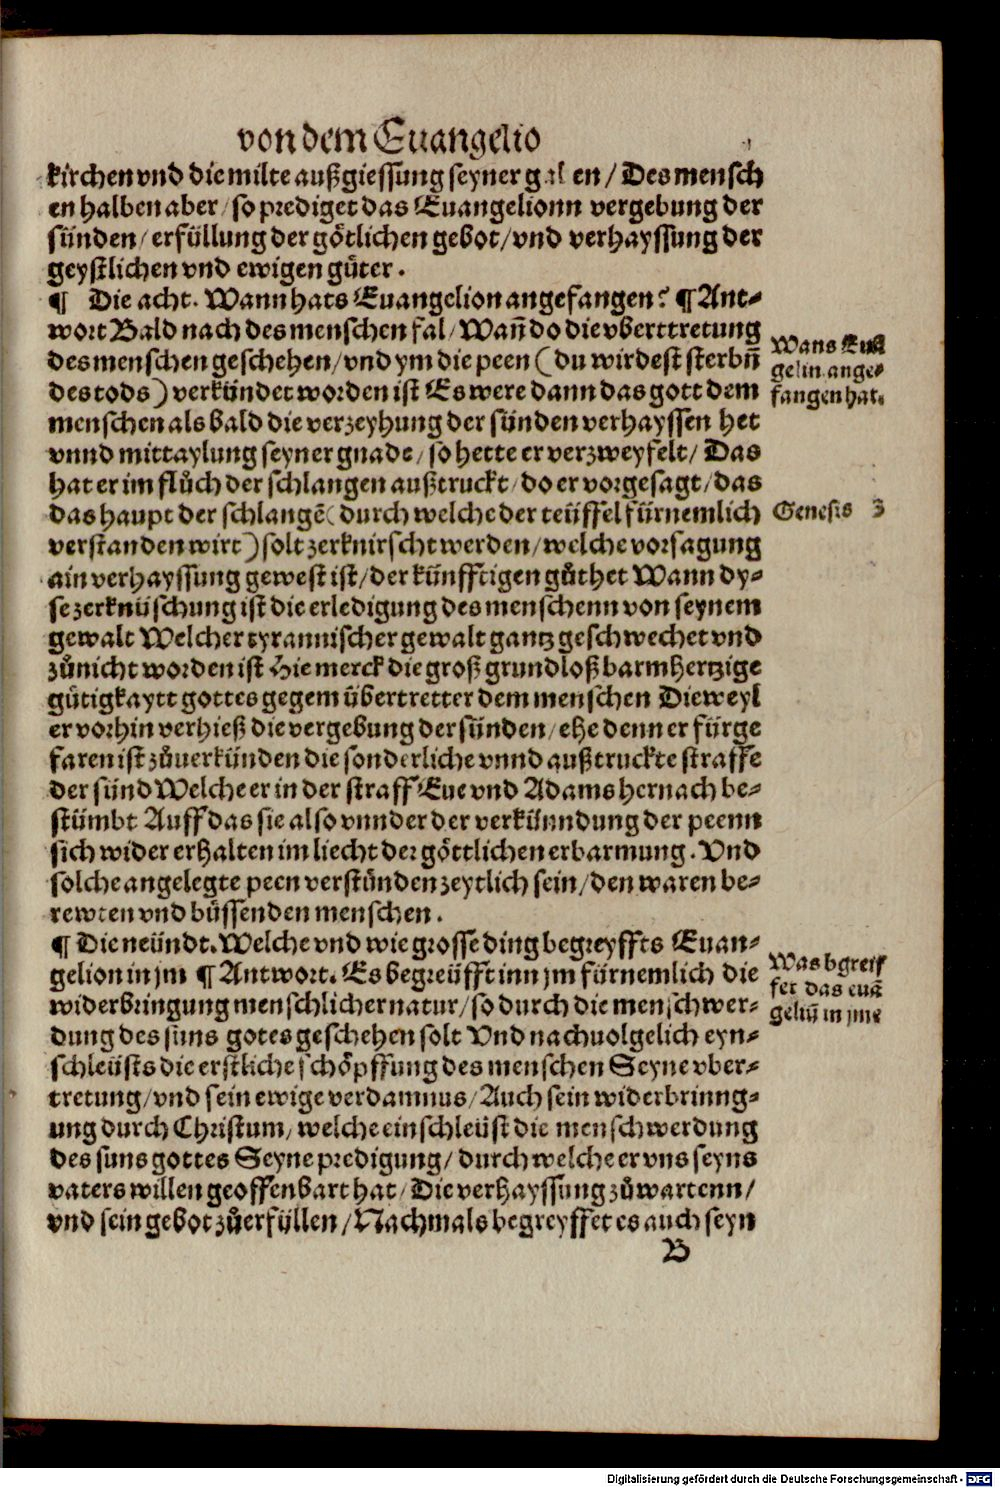 von dem Euangelio
kirchen vnd die milte außgiessung seyner ga en / Des mensch
en halben aber / so prediget das Euangelionn vergebung der
sünden / erfüllung der götlichen gebot / vnd verhayssung der
geystlichen vnd ewigen güter .
¶ Die acht . Wann hats Euangelion angefangen ? ¶ Ant⸗
wort Bald nach des menschen fal / Wañ do die vberttretung
des menschen geschehen / vnd ym die peen ( du wirdest sterbñ
des tods ) verkündet worden ist Es were dann das gott dem
menschen als bald die verzeyhung der sünden verhayssen het
vnnd mittaylung seyner gnade / so hette er verzweyfelt / Das
hat er im flůch der schlangen außtruckt / do er vorgesagt / das
das haupt der schlangẽ ( durch welche der teüffel fürnemlich
verstanden wirt ) solt zerknirscht werden / welche vorsagung
ain verhayssung gewest ist / der künfftigen gůthet Wann dy⸗
se zerknüschung ist die erledigung des menschenn von seynem
gewalt Welcher tyrannischer gewalt gantz geschwechet vnd
zůnicht worden ist Hie merck die groß grundloß barmhertzige
gütigkaytt gottes gegem übertretter dem menschen Dieweyl
er vorhin verhieß die vergebung der sünden / ehe denn er fürge
faren ist zůuerkünden die sonderliche vnnd außtruckte straffe
der sünd Welche er in der straff Eue vnd Adams hernach be⸗
stümbt Auff das sie also vnnder der verkünndung der peenn
sich wider erhalten im liecht der göttlichen erbarmung . Vnd
solche angelegte peen verstünden zeytlich sein / den waren be⸗
rewten vnd büssenden menschen .
¶ Die neündt . Welche vnd wie grosse ding begreyffts Euan⸗
gelion in jm ¶ Antwort . Es begreüfft inn jm fürnemlich die
widerbringung menschlicher natur / so durch die menschwer⸗
dung des suns gotes geschehen solt Vnd nachuolgelich eyn⸗
schleüsts die erstliche schöpffung des menschen Seyne vber⸗
tretung / vnd sein ewige verdamnus / Auch sein widerbrinng⸗
ung durch Christum / welche einschleüst die menschwerdung
des suns gottes Seyne predigung / durch welche er vns seyns
vaters willen geoffenbart hat / Die verhayssung zů wartenn /
vnd sein gebot zů erfüllen / Nachmals begreyffet es auch seyn
B
Wans Euā
gelin ange⸗
fangen hat.
Genesis 3
Was bgreif
fet das euā
geliū in jme
Digitalisierung gefördert durch die Deutsche Forschungsgemeinschaft - DFG